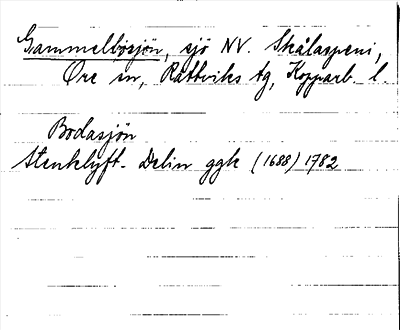 Gammelbosjön, sjö NV. Skålaspeni,
Ore sn, Rättviks tg, Kopparb. l.
Bodasjön
Stenklyft. Delin ggk (1688) 1782